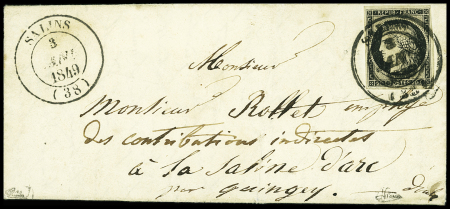 SALINS
3
JANV.
1849
(38)
REPUB. FRANC.
Monsieur
Monsieur Rollet employé
des contributions indirectes
à la Saline d'arc
par Quingey.